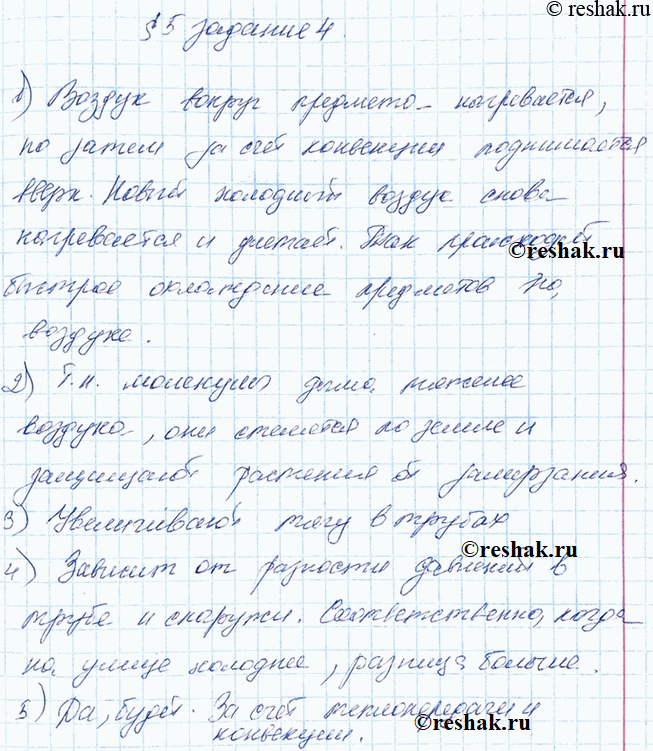 © reshak.ru
§5 задание 4.
1) Воздух вокруг предмета нагревается,
но затем за счёт конвекции поднимается
вверх. Новый холодный воздух снова
нагревается и улетает. Так происходит
© reshak.ru
быстрое охлаждение предметов на
воздухе.
2) Т.к. молекулы дыма тяжелее
воздуха, они стелятся по земле и
защищают растения от замерзания.
3) Увеличивают тягу в трубах
© reshak.ru
4) Зависит от разности давлений в
трубе и снаружи. Соответственно, когда
на улице холоднее, разница больше.
5) Да, будет. За счёт теплопередачи и
конвекции.
© reshak.ru